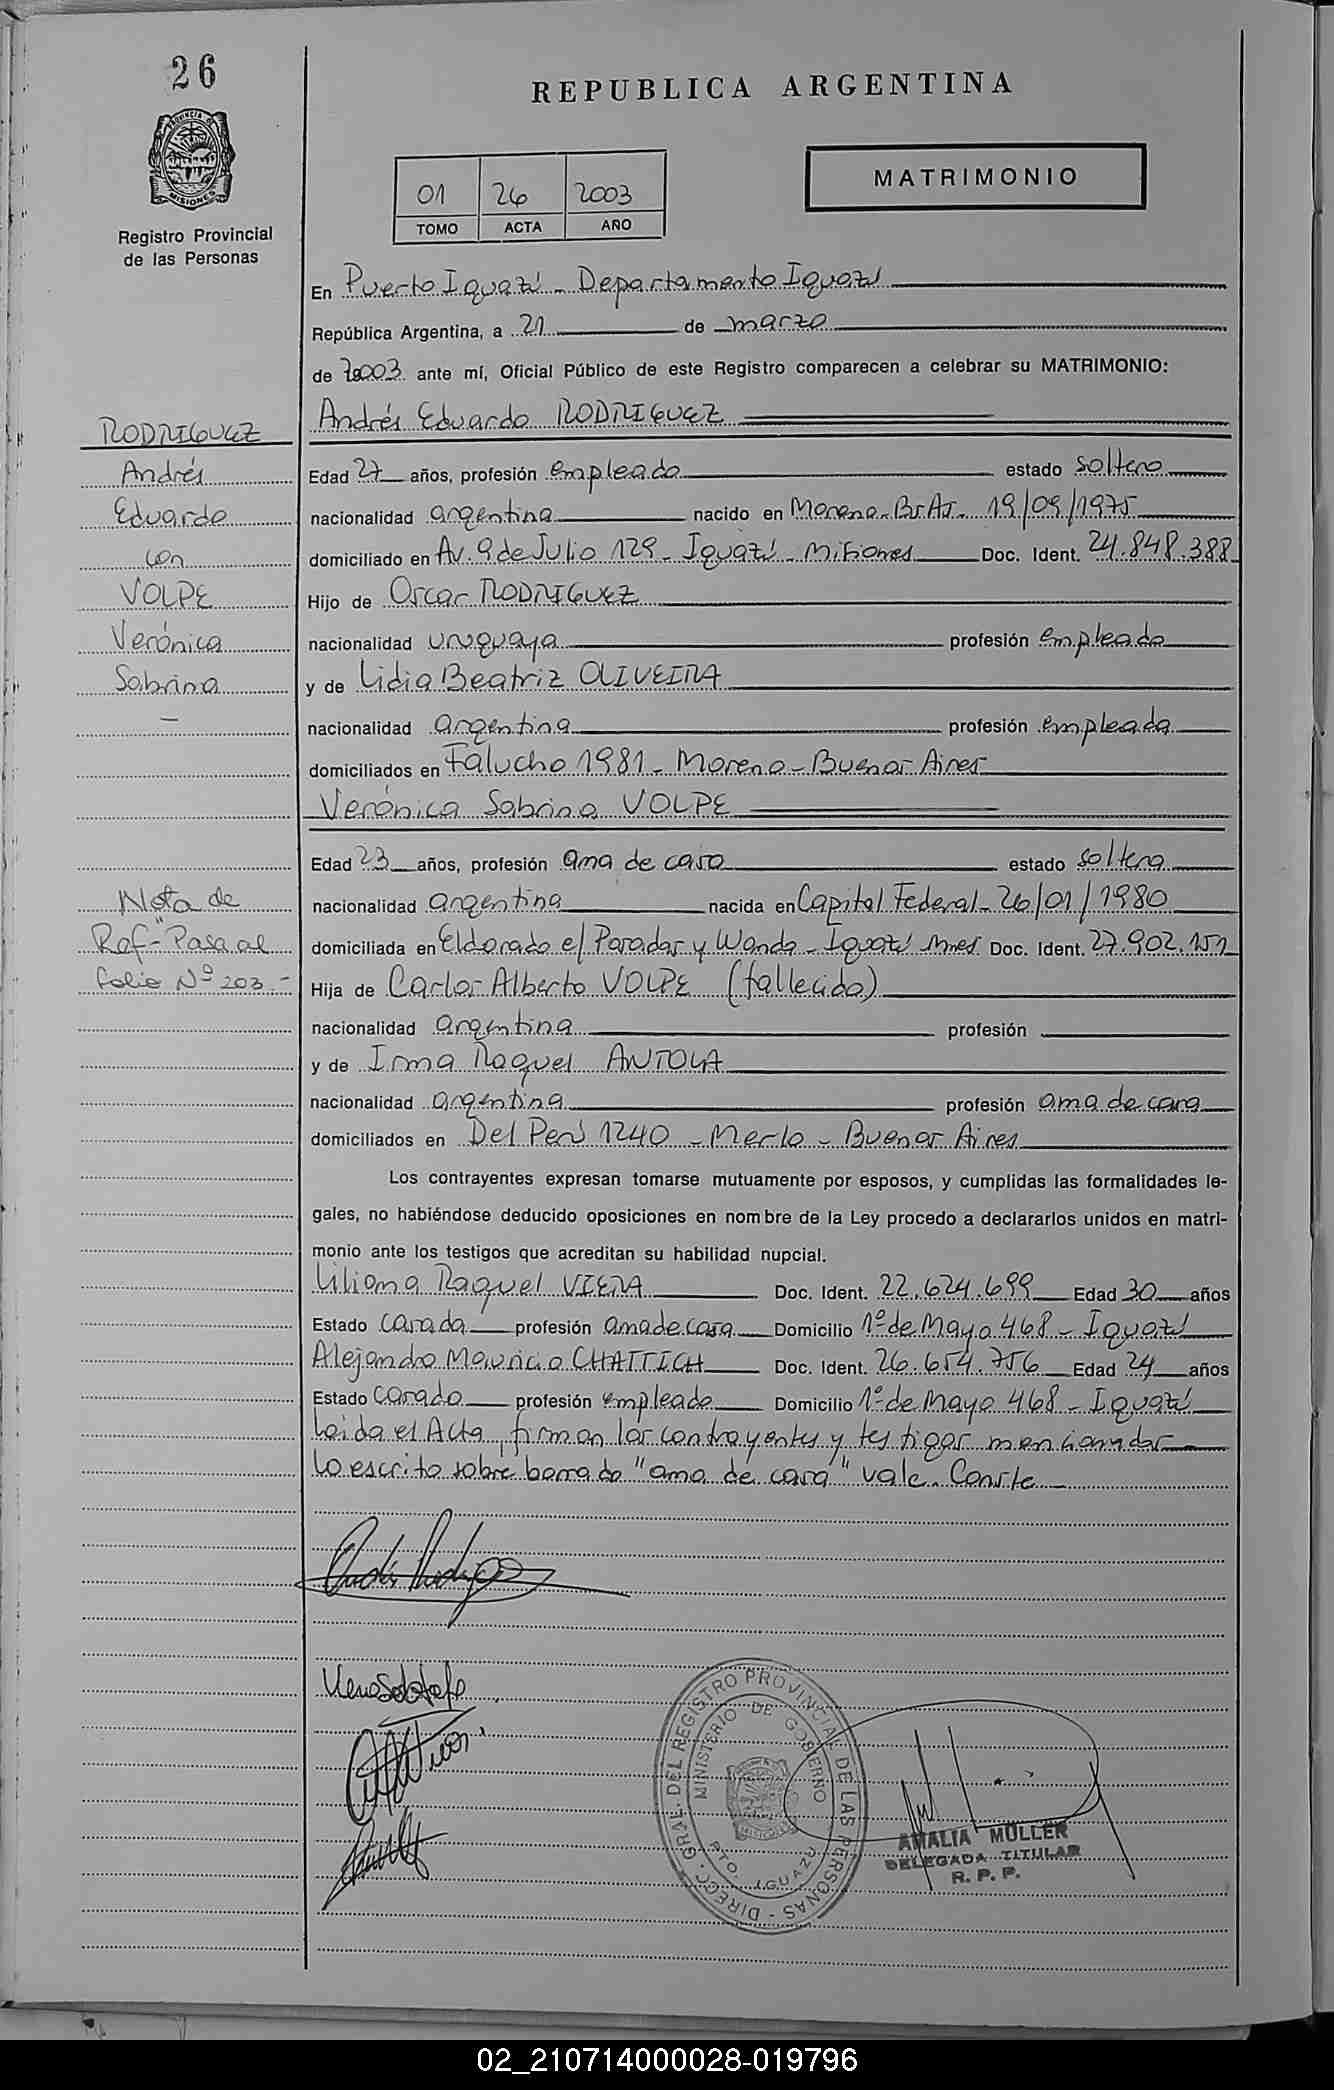 26
REPUBLICA ARGENTINA
PROVINCIA DE MISIONES
Registro Provincial
de las Personas
01 26 2003
TOMO ACTA AÑO
MATRIMONIO
En Puerto Iguazú - Departamento Iguazú
República Argentina, a 21 de marzo
de 2003 ante mí, Oficial Público de este Registro comparecen a celebrar su MATRIMONIO:
Andrés Eduardo RODRIGUEZ
Edad 27 años, profesión empleado estado soltero
nacionalidad argentina nacido en Moreno - Bs As - 19/09/1975
domiciliado en Av. 9 de Julio 129 - Iguazú - Misiones Doc. Ident. 24.848.388
Hijo de Oscar RODRIGUEZ
nacionalidad uruguaya profesión empleado
y de Lidia Beatriz OLIVEIRA
nacionalidad argentina profesión empleada
domiciliados en Falucho 1981 - Moreno - Buenos Aires
Verónica Sabrina VOLPE
Edad 23 años, profesión ama de casa estado soltera
nacionalidad argentina nacida en Capital Federal - 26/01/1980
domiciliada en Eldorado e/ Posadas y Wanda - Iguazú Mnes Doc. Ident. 27.902.151
Hija de Carlos Alberto VOLPE (fallecido)
nacionalidad argentina profesión
y de Irma Raquel ANTOLA
nacionalidad argentina profesión ama de casa
domiciliados en Del Perú 1240 - Merlo - Buenos Aires
Los contrayentes expresan tomarse mutuamente por esposos, y cumplidas las formalidades le-
gales, no habiéndose deducido oposiciones en nombre de la Ley procedo a declararlos unidos en matri-
monio ante los testigos que acreditan su habilidad nupcial.
Liliana Raquel VIERA Doc. Ident. 22.624.699 Edad 30 años
Estado casada profesión ama de casa Domicilio 1º de Mayo 468 - Iguazú
Alejandro Mauricio CHATTICH Doc. Ident. 26.654.756 Edad 24 años
Estado casado profesión empleado Domicilio 1º de Mayo 468 - Iguazú
Leída el Acta, firman los contrayentes y testigos mencionados
Lo escrito sobre borrado "ama de casa" vale. Conste
RODRIGUEZ
Andrés
Eduardo
con
VOLPE
Verónica
Sabrina
-
Nota de
Ref- "Pasa al
folio Nº 203.-
DIRECC. GRAL. DEL REGISTRO PROVINCIAL DE LAS PERSONAS
MINISTERIO DE GOBIERNO
PTO. IGUAZU
AMALIA MÜLLER
DELEGADA TITULAR
R. P. P.
02_210714000028-019796